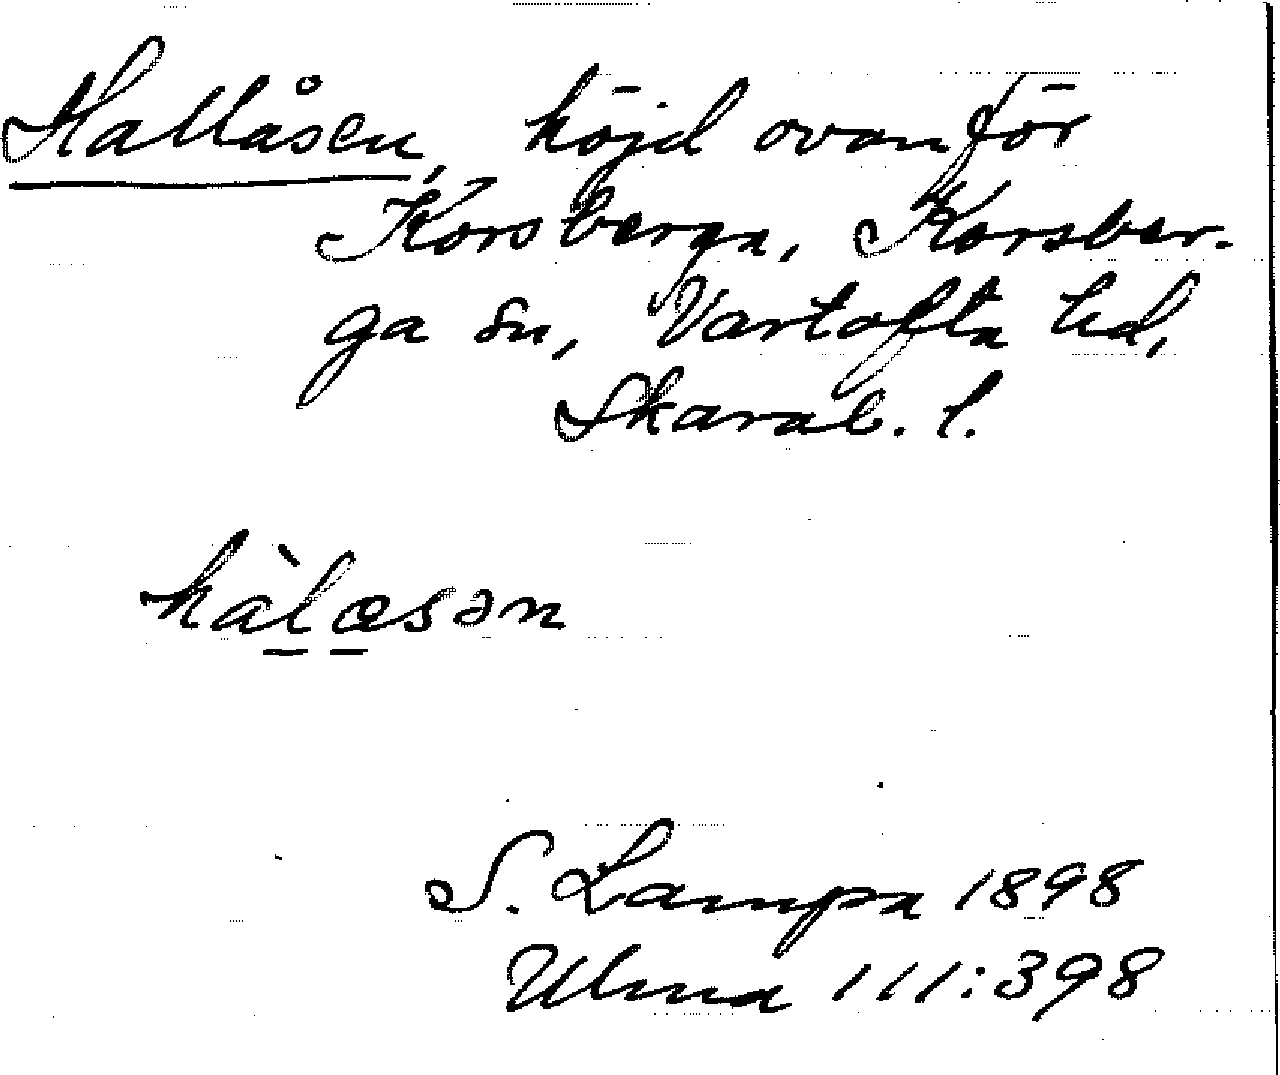 Hallåsen, höjd ovanför
Korsberga, Korsber-
ga sn, Vartofta hd,
Skarab. l.
hàlæsən
S. Lampa 1898
Ulma 111:398